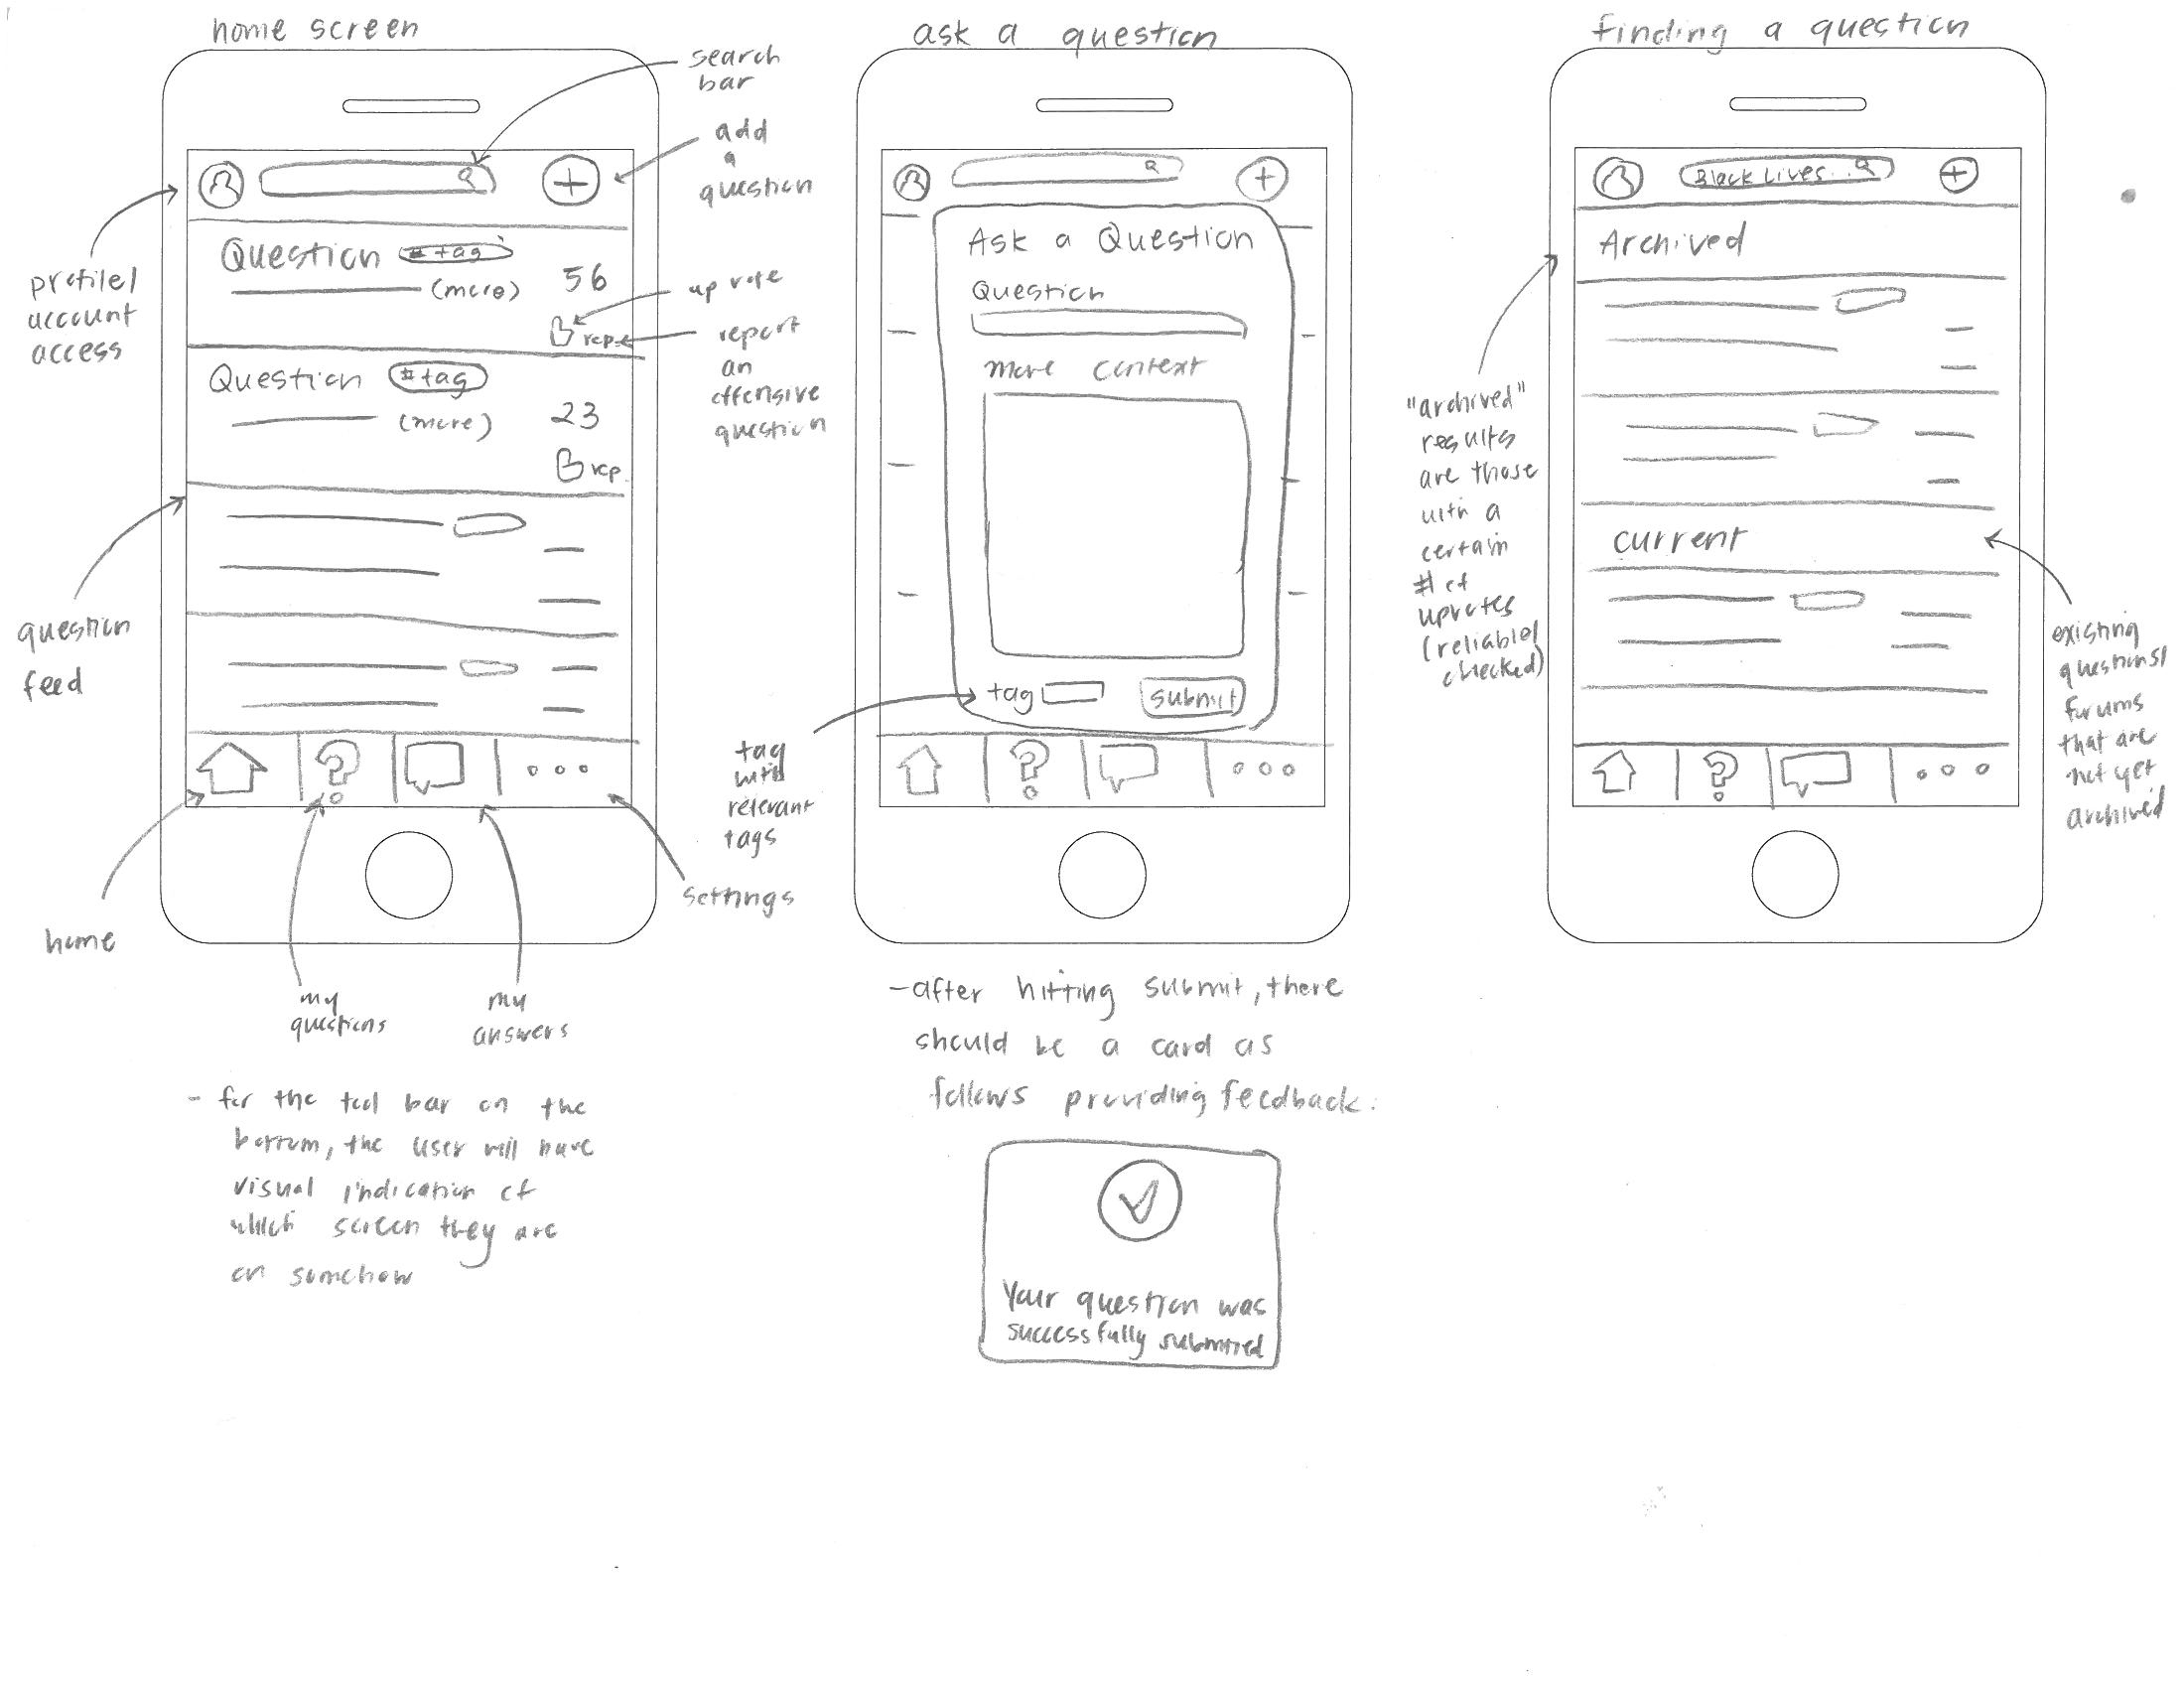 home screen
search
bar
add
a
question
profile/
account
access
Question #tag
(more)
56
rep.
up vote
report
an
offensive
question
Question #tag
(more)
23
rep.
question
feed
home
my
questions
my
answers
settings
- for the tool bar on the
bottom, the user will have
visual indication of
which screen they are
on somehow
ask a question
Ask a Question
Question
more context
tag
submit
tag
with
relevant
tags
- after hitting submit, there
should be a card as
follows providing feedback:
Your question was
successfully submitted
finding a question
Black Lives..
Archived
current
"archived"
results
are those
with a
certain
# of
upvotes
(reliable/
checked)
existing
questions/
forums
that are
not yet
archived